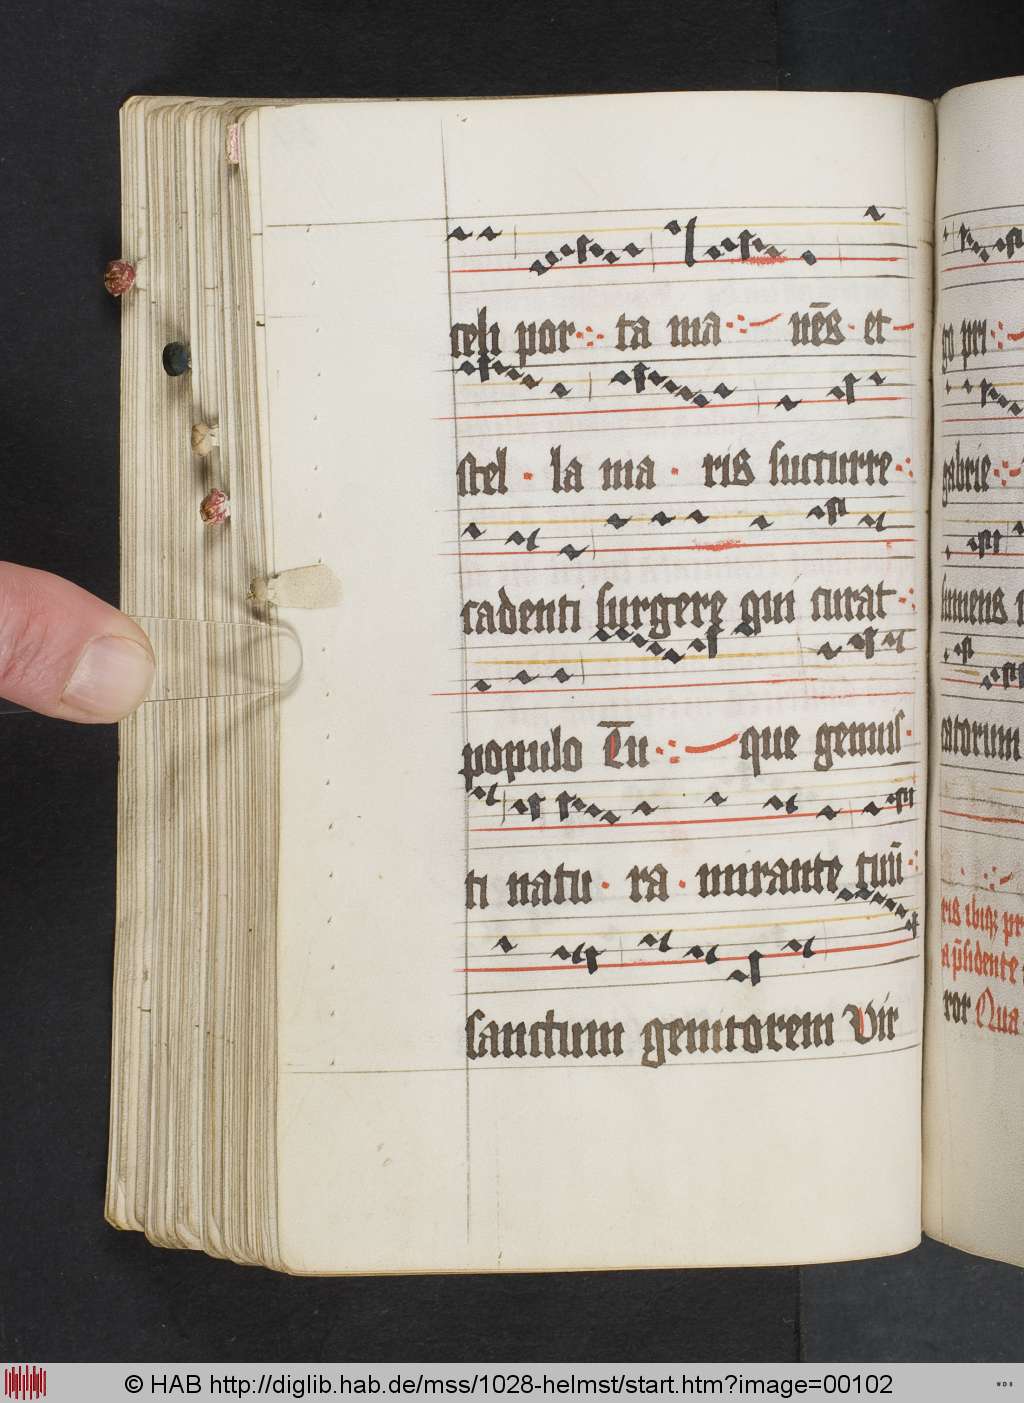 celi por ta ma nēs et
stel la ma ris succurre
cadenti surgere qui curat
populo Tu que genuis
ti natu ra mirante tuū
sanctum genitorem Vir
go pri
gabrie
sumens
catorum
ris ibiqꝫ pr
ror Qua
© HAB http://diglib.hab.de/mss/1028-helmst/start.htm?image=00102